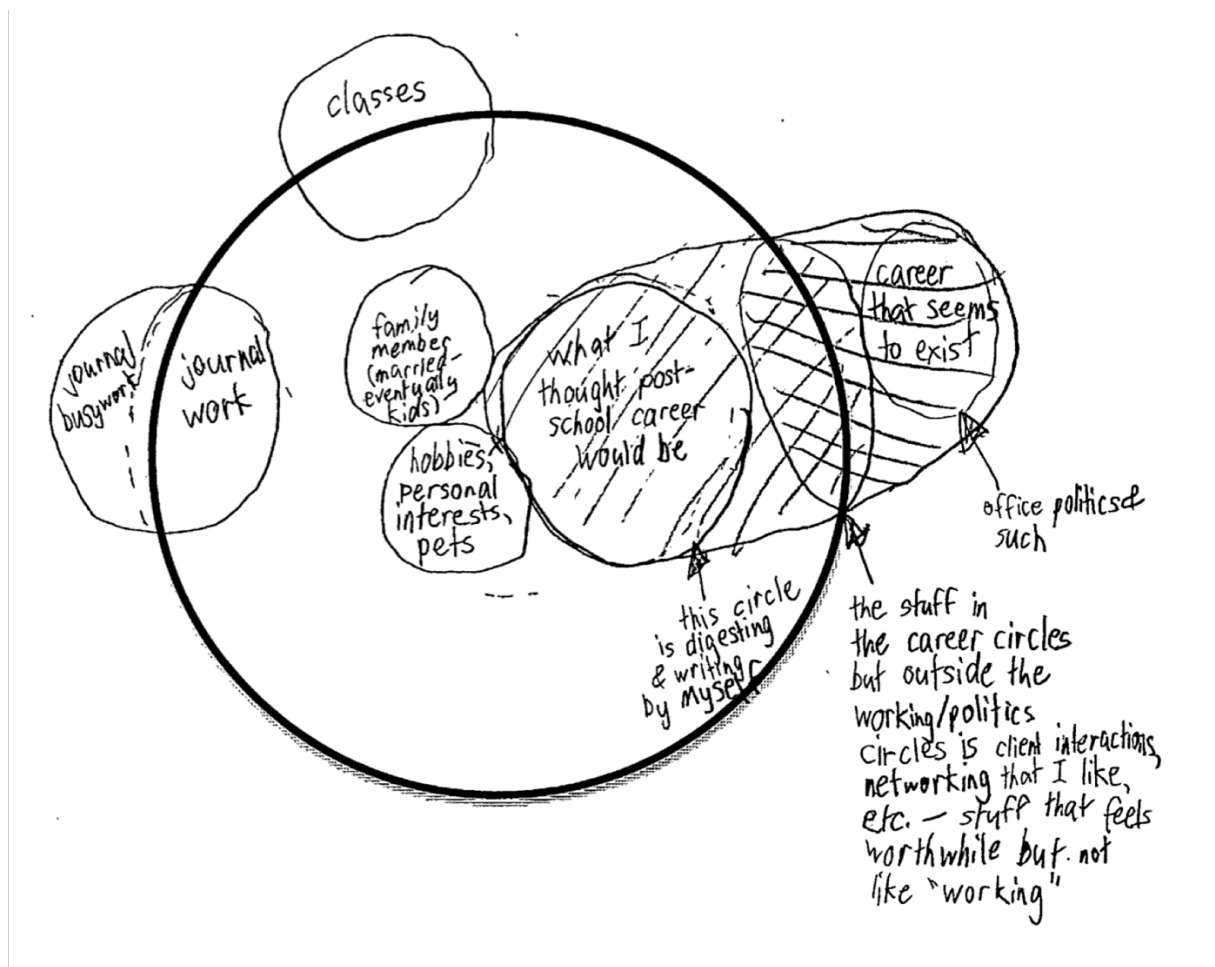 classes
journal
busywork
journal
work
family
member
(married-
eventually
kids)
hobbies,
personal
interests,
pets
what I
thought post-
school career
would be
career
that seems
to exist
office politics &
such
this circle
is digesting
& writing
by myself
the stuff in
the career circles
but outside the
working/politics
circles is client interactions,
networking that I like,
etc. — stuff that feels
worthwhile but not
like "working"